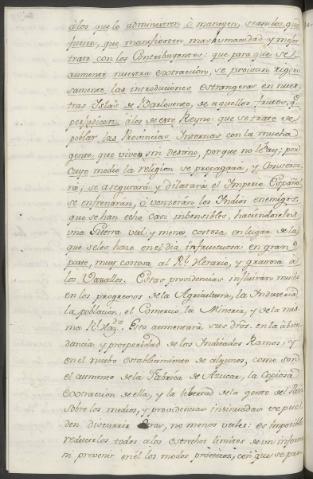 á los que lo administren ó manejen, sean los que
fuere, que manifiesten mas humanidad y mejor
trato con los Contribuyentes: que para que se
aumente nuestra extraccion, se proivan rigo-
samente las introducciones extrangeras en nues-
tras Islas de Barlovento, de aquellos frutos, q.e
perjudican á los de este Reyno: que se trate de
poblar las Provincias Internas con la mucha
gente que vive sin destino, porque no lo hay: por
cuyo medio la religion se propagara, y conserva-
rá; se asegurará y dilatará el Imperio Español
se enfrenarán, ó vencerán los Indios enemigos,
que se han echo casi imbensibles, haciendoseles
una Guerra util y menos costosa, en lugar de la
que se les hace en el dia infructuosa en gran
parte, muy costosa al Rl. Herario, y gravosa á
los Vasallos. Estas providencias influirán mucho
en los progresos de la Agricultura, la Industria
la poblacion, el Comercio, la Mineria, y de la mis-
ma Rl. Haz.da Esta aumentará sus dros. en la abun-
dancia y prosperidad de los Indicados Ramos, y
en el nuebo establecimiento de algunos, como son
el aumento de la Fabrica de Azucar, la copiosa
Extraccion de ella, y la libertad de la gente del Pais
Sobre los medios, y providencias insinuadas se pue-
den discurrir otras, no menos utiles: es imposible
reducirlas todas á los estrechos limites de un informe
ni prevenir en él los modos practicos, con que se par